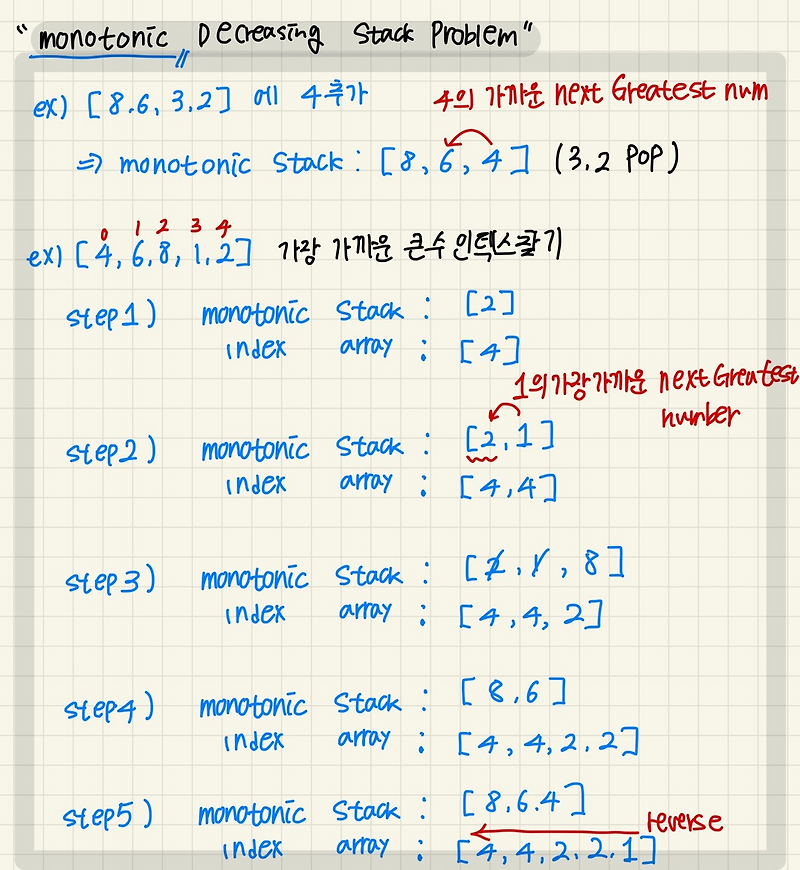 "monotonic Decreasing Stack Problem"
ex) [8.6, 3.2] 에 4추가
4의 가까운 next Greatest num
=> monotonic Stack : [8, 6, 4] (3.2 POP)
0 1 2 3 4
ex) [4, 6.8, 1.2] 가장 가까운 큰수 인덱스찾기
step1) monotonic Stack : [2]
index array : [4]
1의 가장 가까운 next Greatest
number
step2) monotonic Stack : [2, 1]
index array : [4,4]
step3) monotonic Stack : [2, 1, 8]
index array : [4,4, 2]
step4) monotonic Stack : [8.6]
index array : [4, 4, 2.2]
step5) monotonic Stack : [8.6.4]
reverse
index array : [4, 4, 2.2.1]